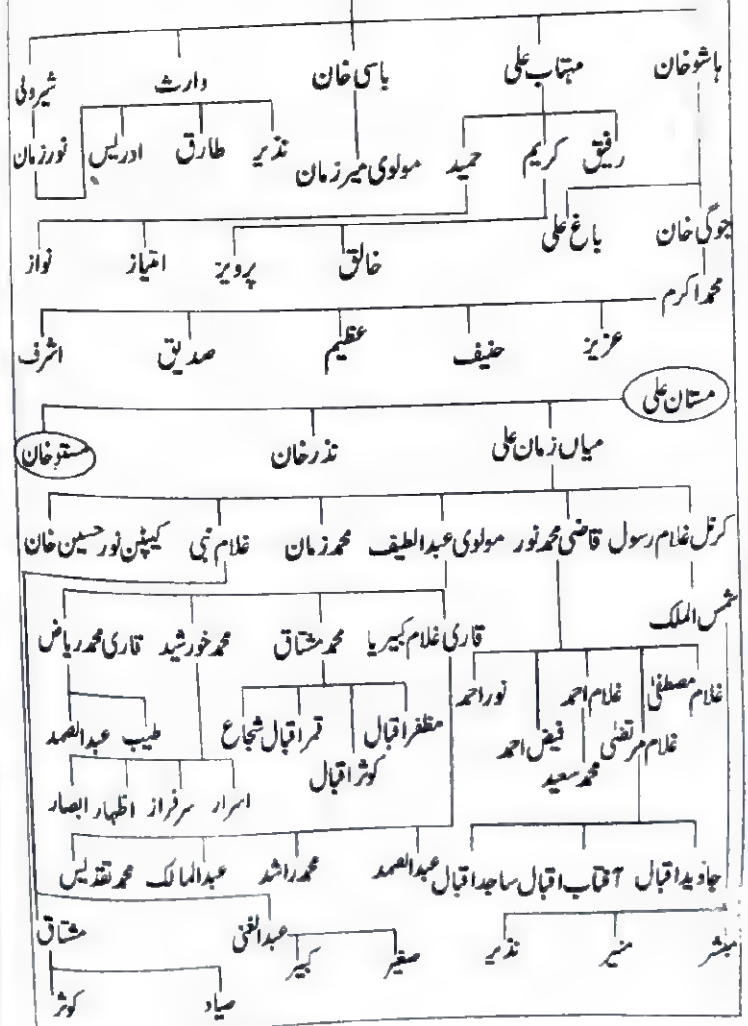 ہاشو خان مہتاب علی باسی خان وارث شیر ولی
رفیق کریم حمید مولوی میر زمان نذیر طارق ادریس نور زمان
جوگی خان باغ علی خالق پرویز امتیاز نواز
محمد اکرم
عزیز حنیف عظیم صدیق اشرف
مستان علی
میاں زمان علی نذر خان مستو خان
کرنل غلام رسول قاضی محمد نور مولوی عبد الطیف محمد زمان غلام نبی کیپٹن نور حسین خان
شمس الملک
قاری غلام کبیریا محمد مشتاق محمد خورشید قاری محمد ریاض
غلام مصطفیٰ غلام مرتضیٰ غلام احمد فیض احمد نور احمد
محمد سعید
مظفر اقبال کوثر اقبال قمر اقبال شجاع طیب عبد الصمد
اسرار سرفراز اظہار ابصار
جاوید اقبال آفتاب اقبال ساجد اقبال عبد الصمد محمد راشد عبد المالک محمد تقدیس
مبشر منیر نذیر صغیر کبیر عبد الغنی مشتاق
صیاد کوثر